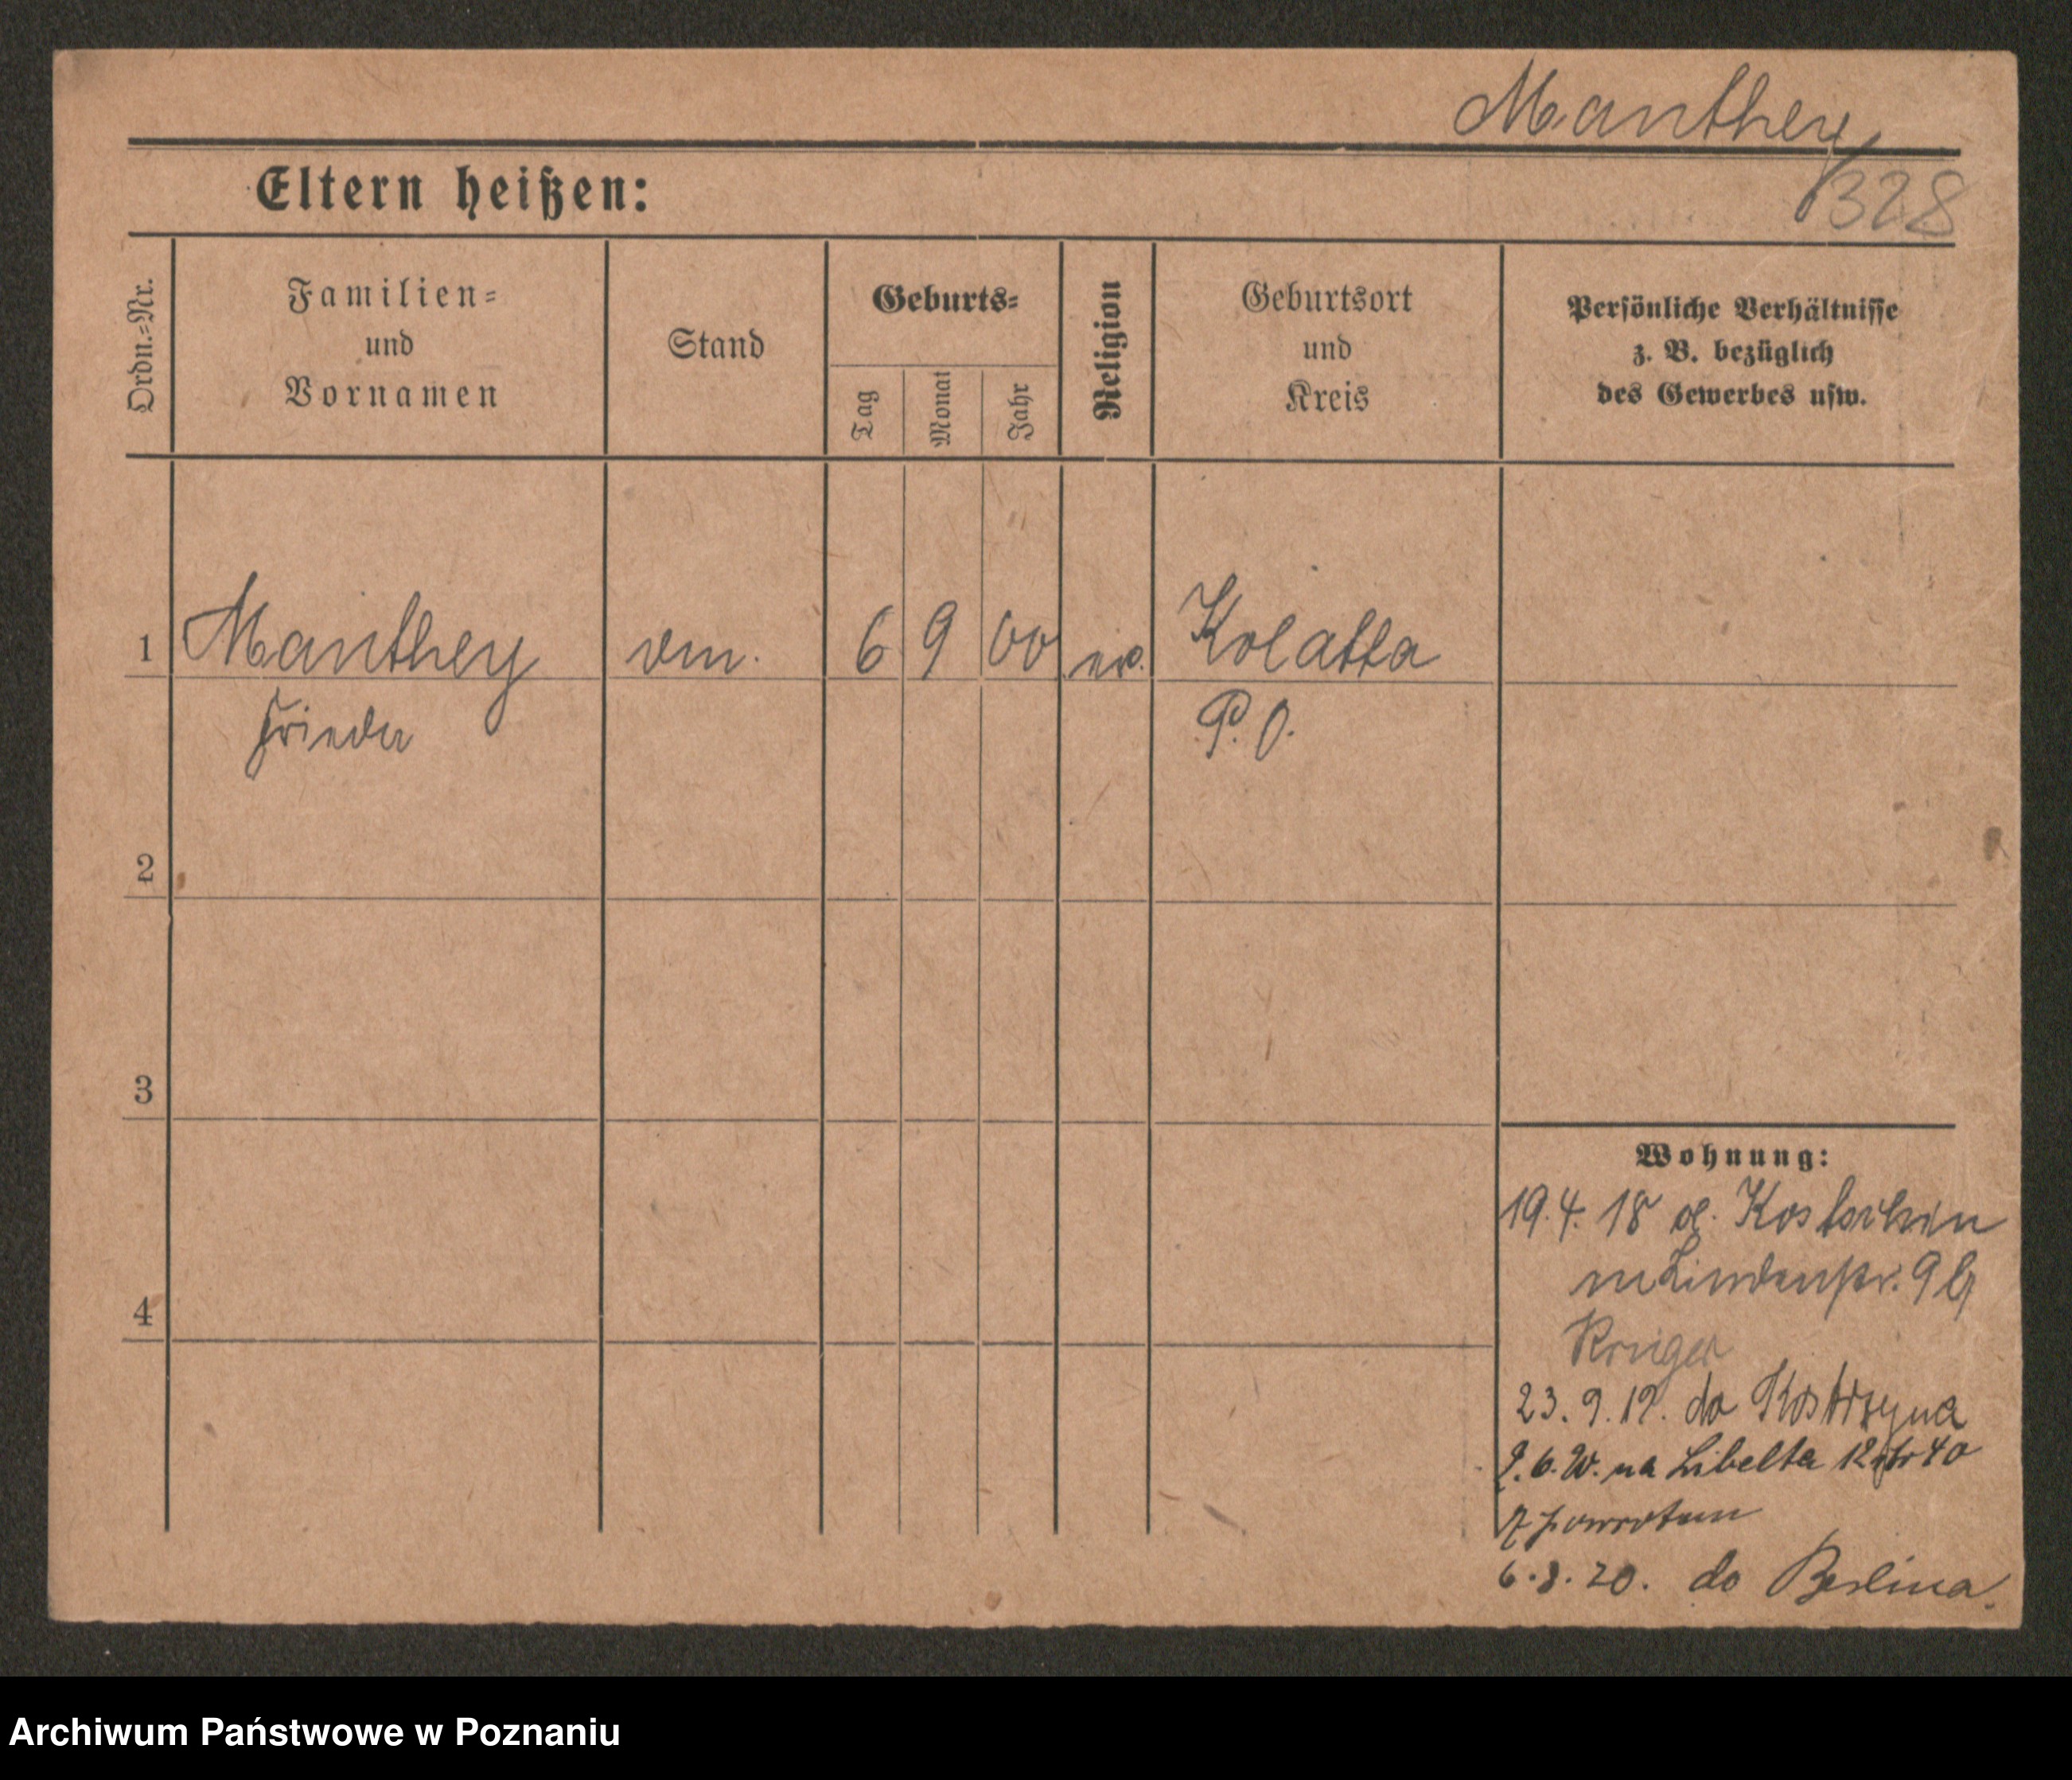 Manthey
328
Eltern heißen:
Ordn.=Nr.
Familien=
und
Vornamen
Stand
Geburts=
Tag
Monat
Jahr
Religion
Geburtsort
und
Kreis
Persönliche Verhältnisse
z. B. bezüglich
des Gewerbes usw.
1 Manthey 6 9 00 ev. Kolatta
P. O.
2
3
4
Wohnung:
19.4.18 Kostschin
Lindenstr. 9
Kruger
23.9.19. do Kostrzyna
na Libelta 12 40
z powrotem
6.8.20. do Berlina.
Archiwum Państwowe w Poznaniu